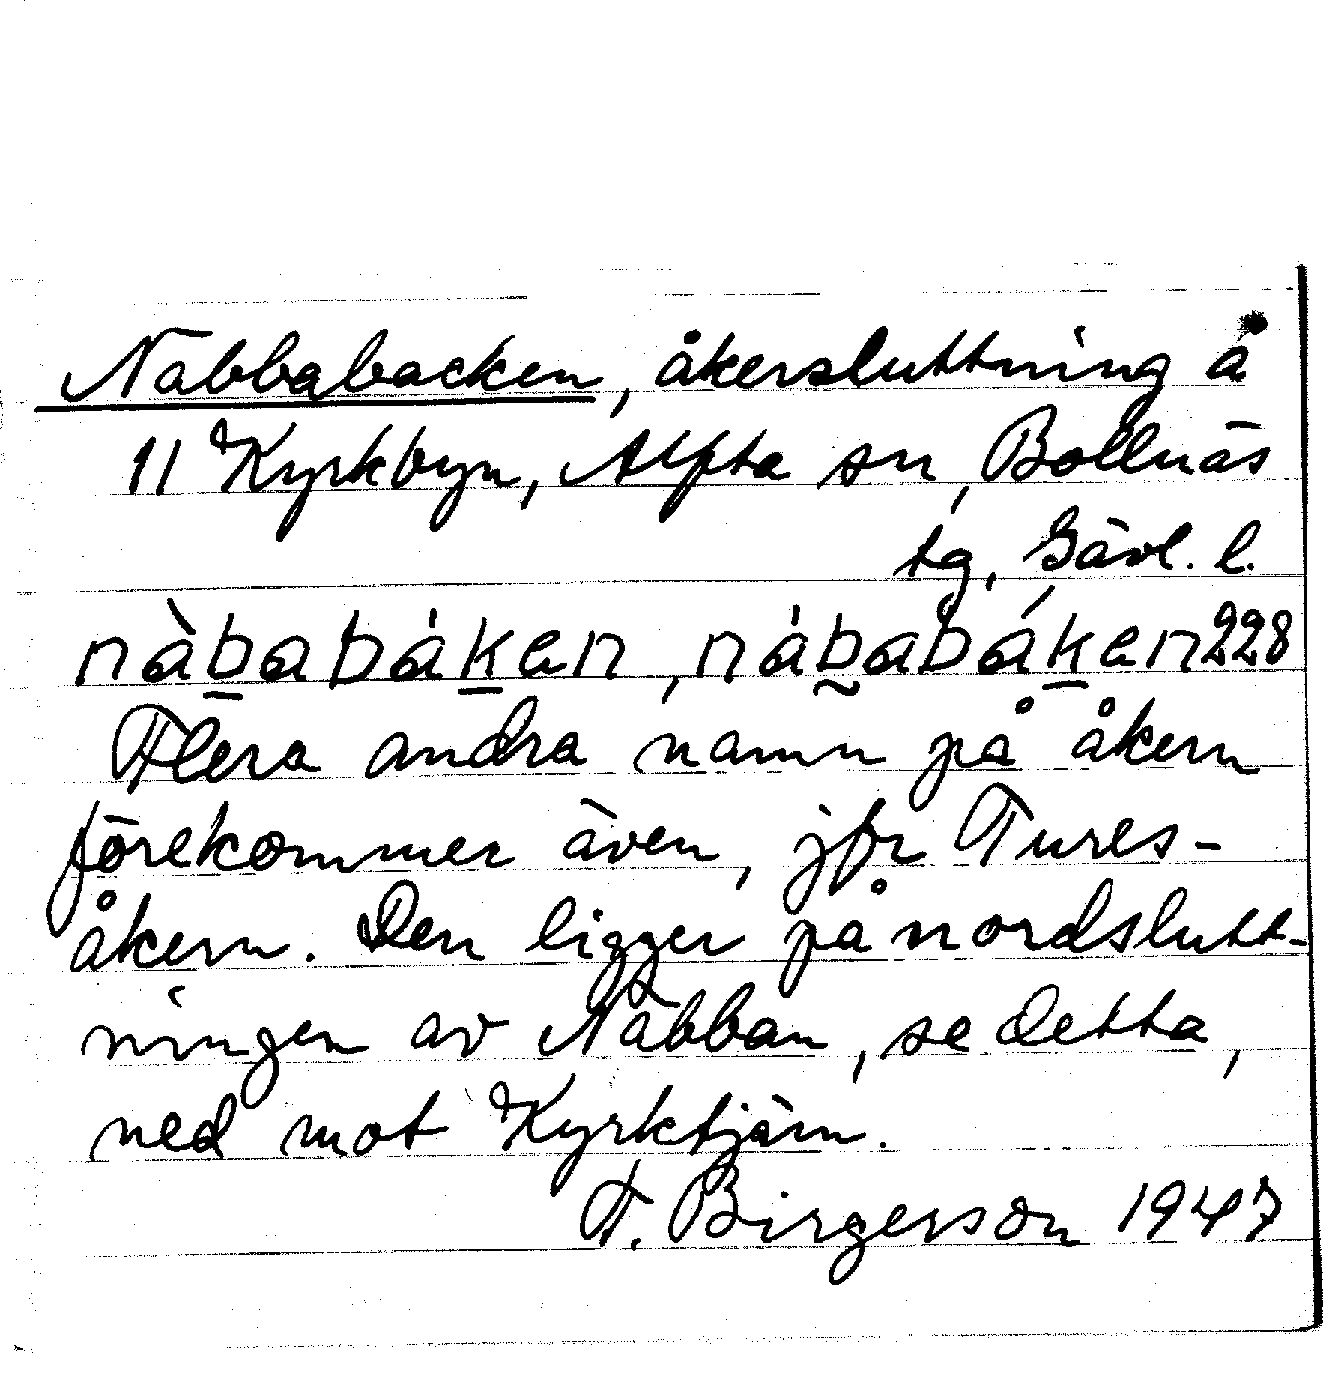 Nabbabacken, åkersluttning å
11 Kyrkbyn, Alfta sn, Bollnäs
tg, Gävl. l.
nàbabȧken, nábabáken 228
Flera andra namn på åkern
förekommer även, jfr Tures-
åkern. Den ligger på nordslutt-
ningen av Nabban, se detta,
ned mot Kyrktjärn.
F. Birgerson 1947